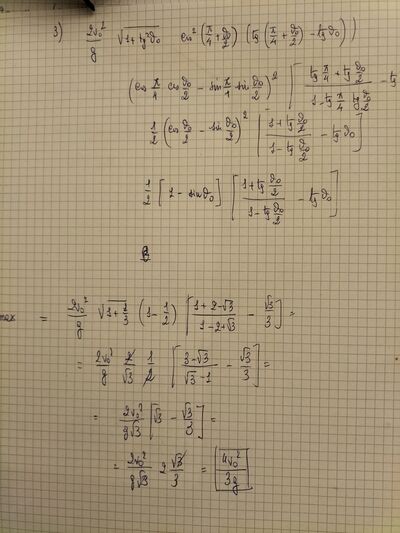 3) 2v₀²/g √(1+tg²ϑ₀) cos²(π/4+ϑ₀/2) (tg(π/4+ϑ₀/2)-tgϑ₀))
(cos π/4 cos ϑ₀/2 - sin π/4 sin ϑ₀/2)² [(tg π/4 + tg ϑ₀/2)/(1 - tg π/4 tg ϑ₀/2) - tg
1/2 (cos ϑ₀/2 - sin ϑ₀/2)² [(1+tg ϑ₀/2)/(1-tg ϑ₀/2) - tgϑ₀]
1/2 [1 - sinϑ₀] [(1+tg ϑ₀/2)/(1-tg ϑ₀/2) - tgϑ₀]
max = 2v₀²/g √(1+1/3) (1-1/2) [(1+2-√3)/(1-2+√3) - √3/3] =
= 2v₀²/g 2/√3 1/2 [(3-√3)/(√3-1) - √3/3] =
= 2v₀²/g√3 [√3 - √3/3] =
= 2v₀²/g√3 2 √3/3 = 4v₀²/3g